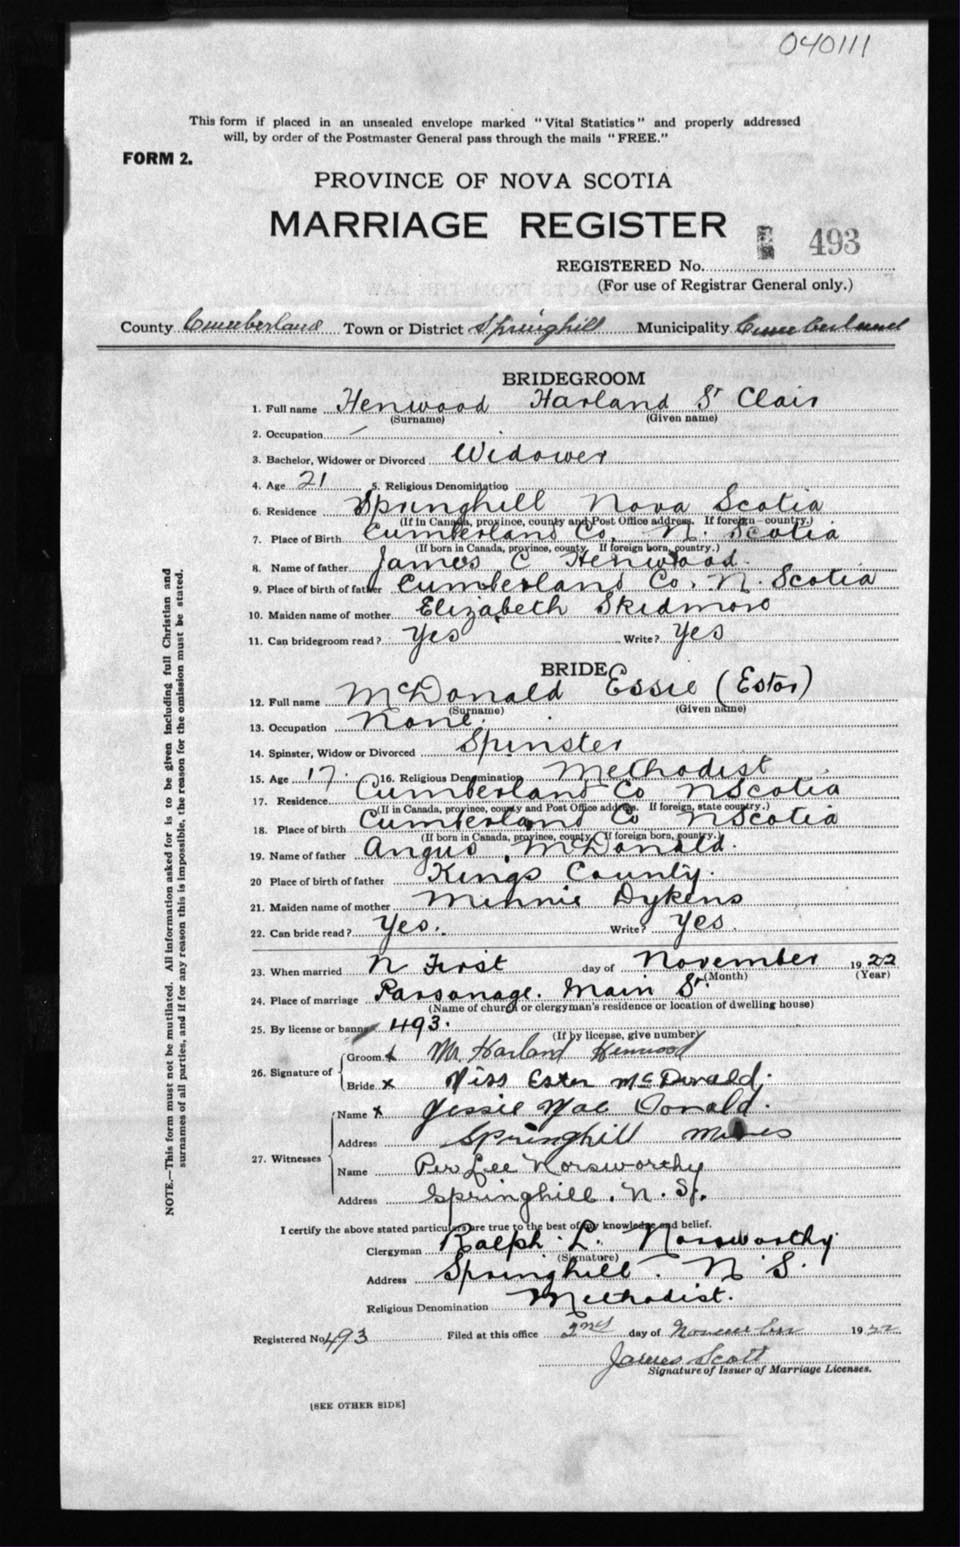 040111
This form if placed in an unsealed envelope marked "Vital Statistics" and properly addressed
will, by order of the Postmaster General pass through the mails "FREE."
FORM 2.
PROVINCE OF NOVA SCOTIA
MARRIAGE REGISTER
493
REGISTERED No.
(For use of Registrar General only.)
County Cumberland Town or District Springhill Municipality Cumberland
BRIDEGROOM
1. Full name Henwood Harland St Clair
(Surname) (Given name)
2. Occupation
3. Bachelor, Widower or Divorced Widower
4. Age 21 5. Religious Denomination
6. Residence Springhill Nova Scotia
(If in Canada, province, county and Post Office address. If foreign—country.)
7. Place of Birth Cumberland Co. N. Scotia
(If born in Canada, province, county. If foreign born, country.)
8. Name of father James C Henwood.
9. Place of birth of father Cumberland Co. N. Scotia
10. Maiden name of mother Elizabeth Skidmore
11. Can bridegroom read? Yes Write? Yes
BRIDE
12. Full name McDonald Essie (Estor)
(Surname) (Given name)
13. Occupation None.
14. Spinster, Widow or Divorced Spinster
15. Age 17. 16. Religious Denomination Methodist
17. Residence Cumberland Co N Scotia
(If in Canada, province, county and Post Office address. If foreign, state country.)
18. Place of birth Cumberland Co N Scotia
(If born in Canada, province, county. If foreign born, country.)
19. Name of father Angus McDonald.
20 Place of birth of father Kings County.
21. Maiden name of mother Minnie Dykens
22. Can bride read? Yes. Write? Yes.
23. When married First day of November 1922
(Month) (Year)
24. Place of marriage Parsonage. Main St.
(Name of church or clergyman's residence or location of dwelling house)
25. By license or banns 493.
(If by license, give number)
26. Signature of
Groom x Mr Harland Henwood
Bride x Miss Ester McDonald.
27. Witnesses
Name x Jessie Mac Donald.
Address Springhill Mines
Name Per Lee Norsworthy
Address Springhill. N. S.
I certify the above stated particulars are true to the best of my knowledge and belief.
Clergyman Ralph L. Norsworthy
(Signature)
Address Springhill. N S.
Religious Denomination Methodist.
Registered No 493 Filed at this office 2nd day of November 1922
James Scott
Signature of Issuer of Marriage Licenses.
[SEE OTHER SIDE]
NOTE.—This form must not be mutilated. All information asked for is to be given including full Christian and
surnames of all parties, and if for any reason this is impossible, the reason for the omission must be stated.